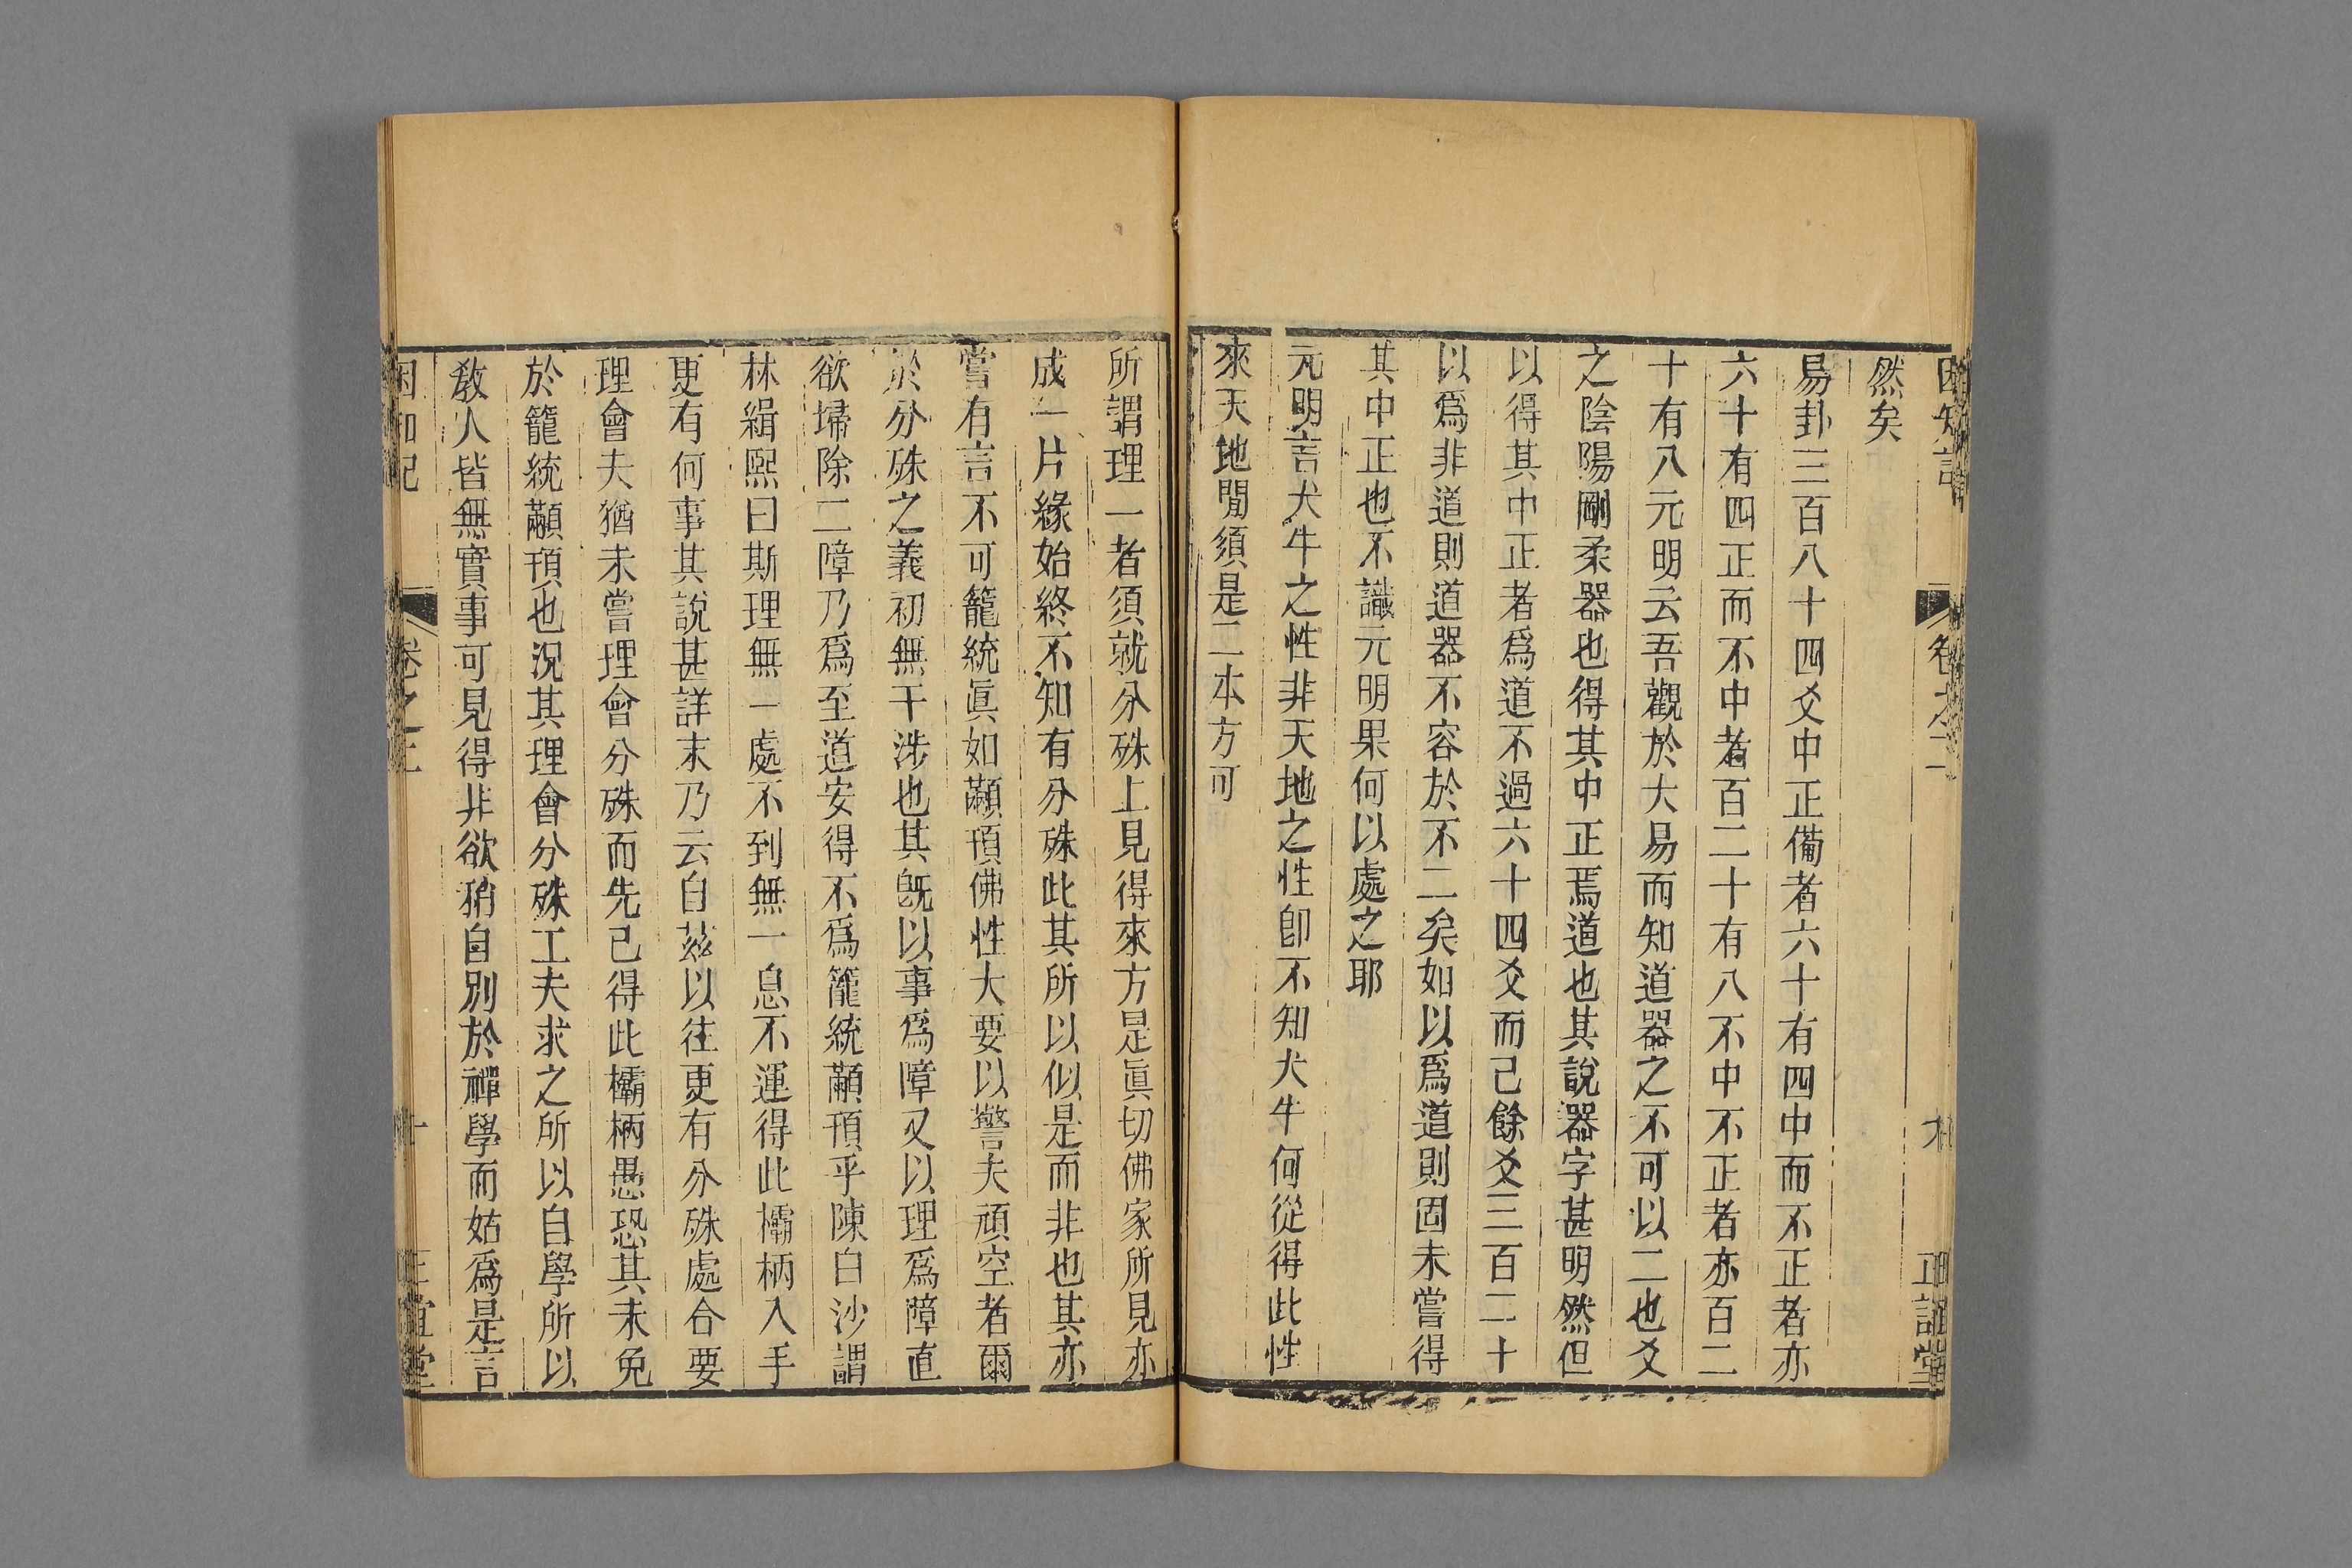 困知記
卷之
正誼堂
然矣
易卦三百八十四爻中正備者六十有四中而不正者亦
六十有四正而不中者百二十有八不中不正者亦百二
十有八元明云吾觀於大易而知道器之不可以二也爻
之陰陽剛柔器也得其中正焉道也其說器字甚明然但
以得其中正者爲道不過六十四爻而已餘爻三百二十
以爲非道則道器不容於不二矣如以爲道則固未嘗得
其中正也不識元明果何以處之耶
元明言犬牛之性非天地之性卽不知犬牛何從得此性
來天地閒須是二本方可
所謂理一者須就分殊上見得來方是眞切佛家所見亦
成一片緣始終不知有分殊此其所以似是而非也其亦
嘗有言不可籠統眞如顢頇佛性大要以警夫頑空者爾
於分殊之義初無干涉也其旣以事爲障又以理爲障直
欲埽除二障乃爲至道安得不爲籠統顢頇乎陳白沙謂
林緝熙曰斯理無一處不到無一息不運得此欛柄入手
更有何事其說甚詳末乃云自茲以往更有分殊處合要
理會夫猶未嘗理會分殊而先已得此欛柄愚恐其未免
於籠統顢頇也況其理會分殊工夫求之所以自學所以
敎人皆無實事可見得非欲稍自別於禪學而姑爲是言
困知記
卷之
正誼堂